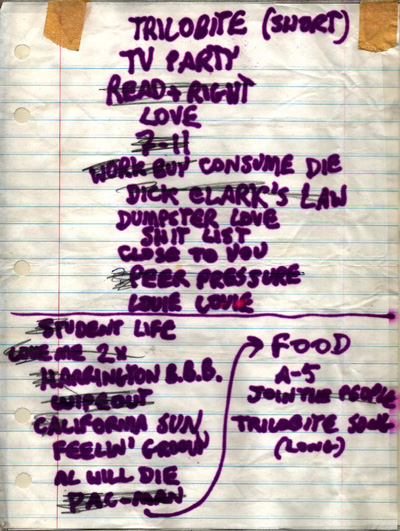 TRILOBITE (SHORT)
TV PARTY
READ + RIGHT
LOVE
7-11
WORK BUY CONSUME DIE
DICK CLARK'S LAW
DUMPSTER LOVE
SHIT LIST
CLOSE TO YOU
PEER PRESSURE
LOUIE LOUIE
STUDENT LIFE
LOVE ME 2X
HARRINGTON B.B.B.
WIPEOUT
CALIFORNIA SUN
FEELIN' GROOVY
AL WILL DIE
PAC-MAN
FOOD
A-5
JOIN THE PEOPLE
TRILOBITE SONG
(LONG)